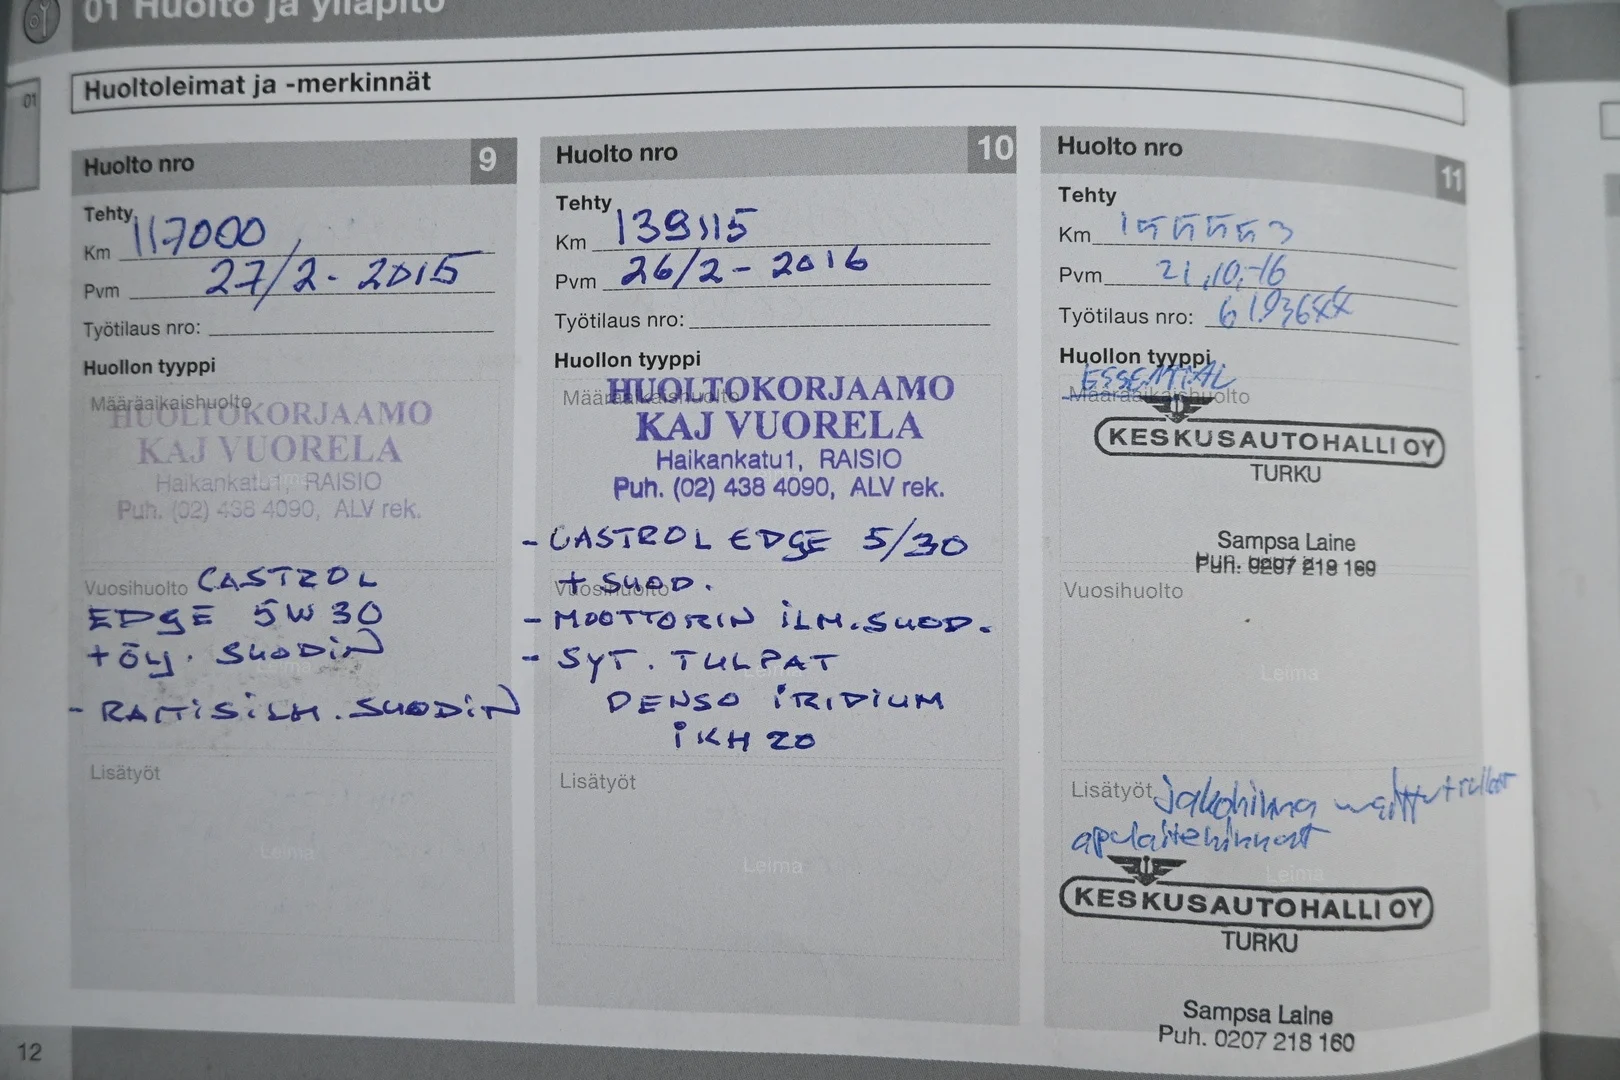 01 Huolto ja ylläpito
01
Huoltoleimat ja -merkinnät
Huolto nro 9
Tehty
Km 117000
Pvm 27/2-2015
Työtilaus nro:
Huollon tyyppi
Määräaikaishuolto
HUOLTOKORJAAMO
KAJ VUORELA
Haikankatu1, RAISIO
Puh. (02) 438 4090, ALV rek.
Vuosihuolto CASTROL
EDGE 5W30
+ ÖLJ. SUODIN
- RAITISILM. SUODIN
Leima
Lisätyöt
Leima
Huolto nro 10
Tehty
Km 139115
Pvm 26/2-2016
Työtilaus nro:
Huollon tyyppi
Määräaikaishuolto
HUOLTOKORJAAMO
KAJ VUORELA
Haikankatu1, RAISIO
Puh. (02) 438 4090, ALV rek.
- CASTROL EDGE 5/30
+ SUOD.
Vuosihuolto
- MOOTTORIN ILM.SUOD.
- SYT. TULPAT
Leima
DENSO IRIDIUM
IKH 20
Lisätyöt
Leima
Huolto nro 11
Tehty
Km 155553
Pvm 21.10.-16
Työtilaus nro:
Huollon tyyppi
ESSENTIAL
Määräaikaishuolto
KESKUSAUTOHALLI OY
TURKU
Sampsa Laine
Puh. 0207 218 160
Vuosihuolto
Leima
Lisätyöt Jakohihna
apulaitehihnat
Leima
KESKUSAUTOHALLI OY
TURKU
Sampsa Laine
Puh. 0207 218 160
12